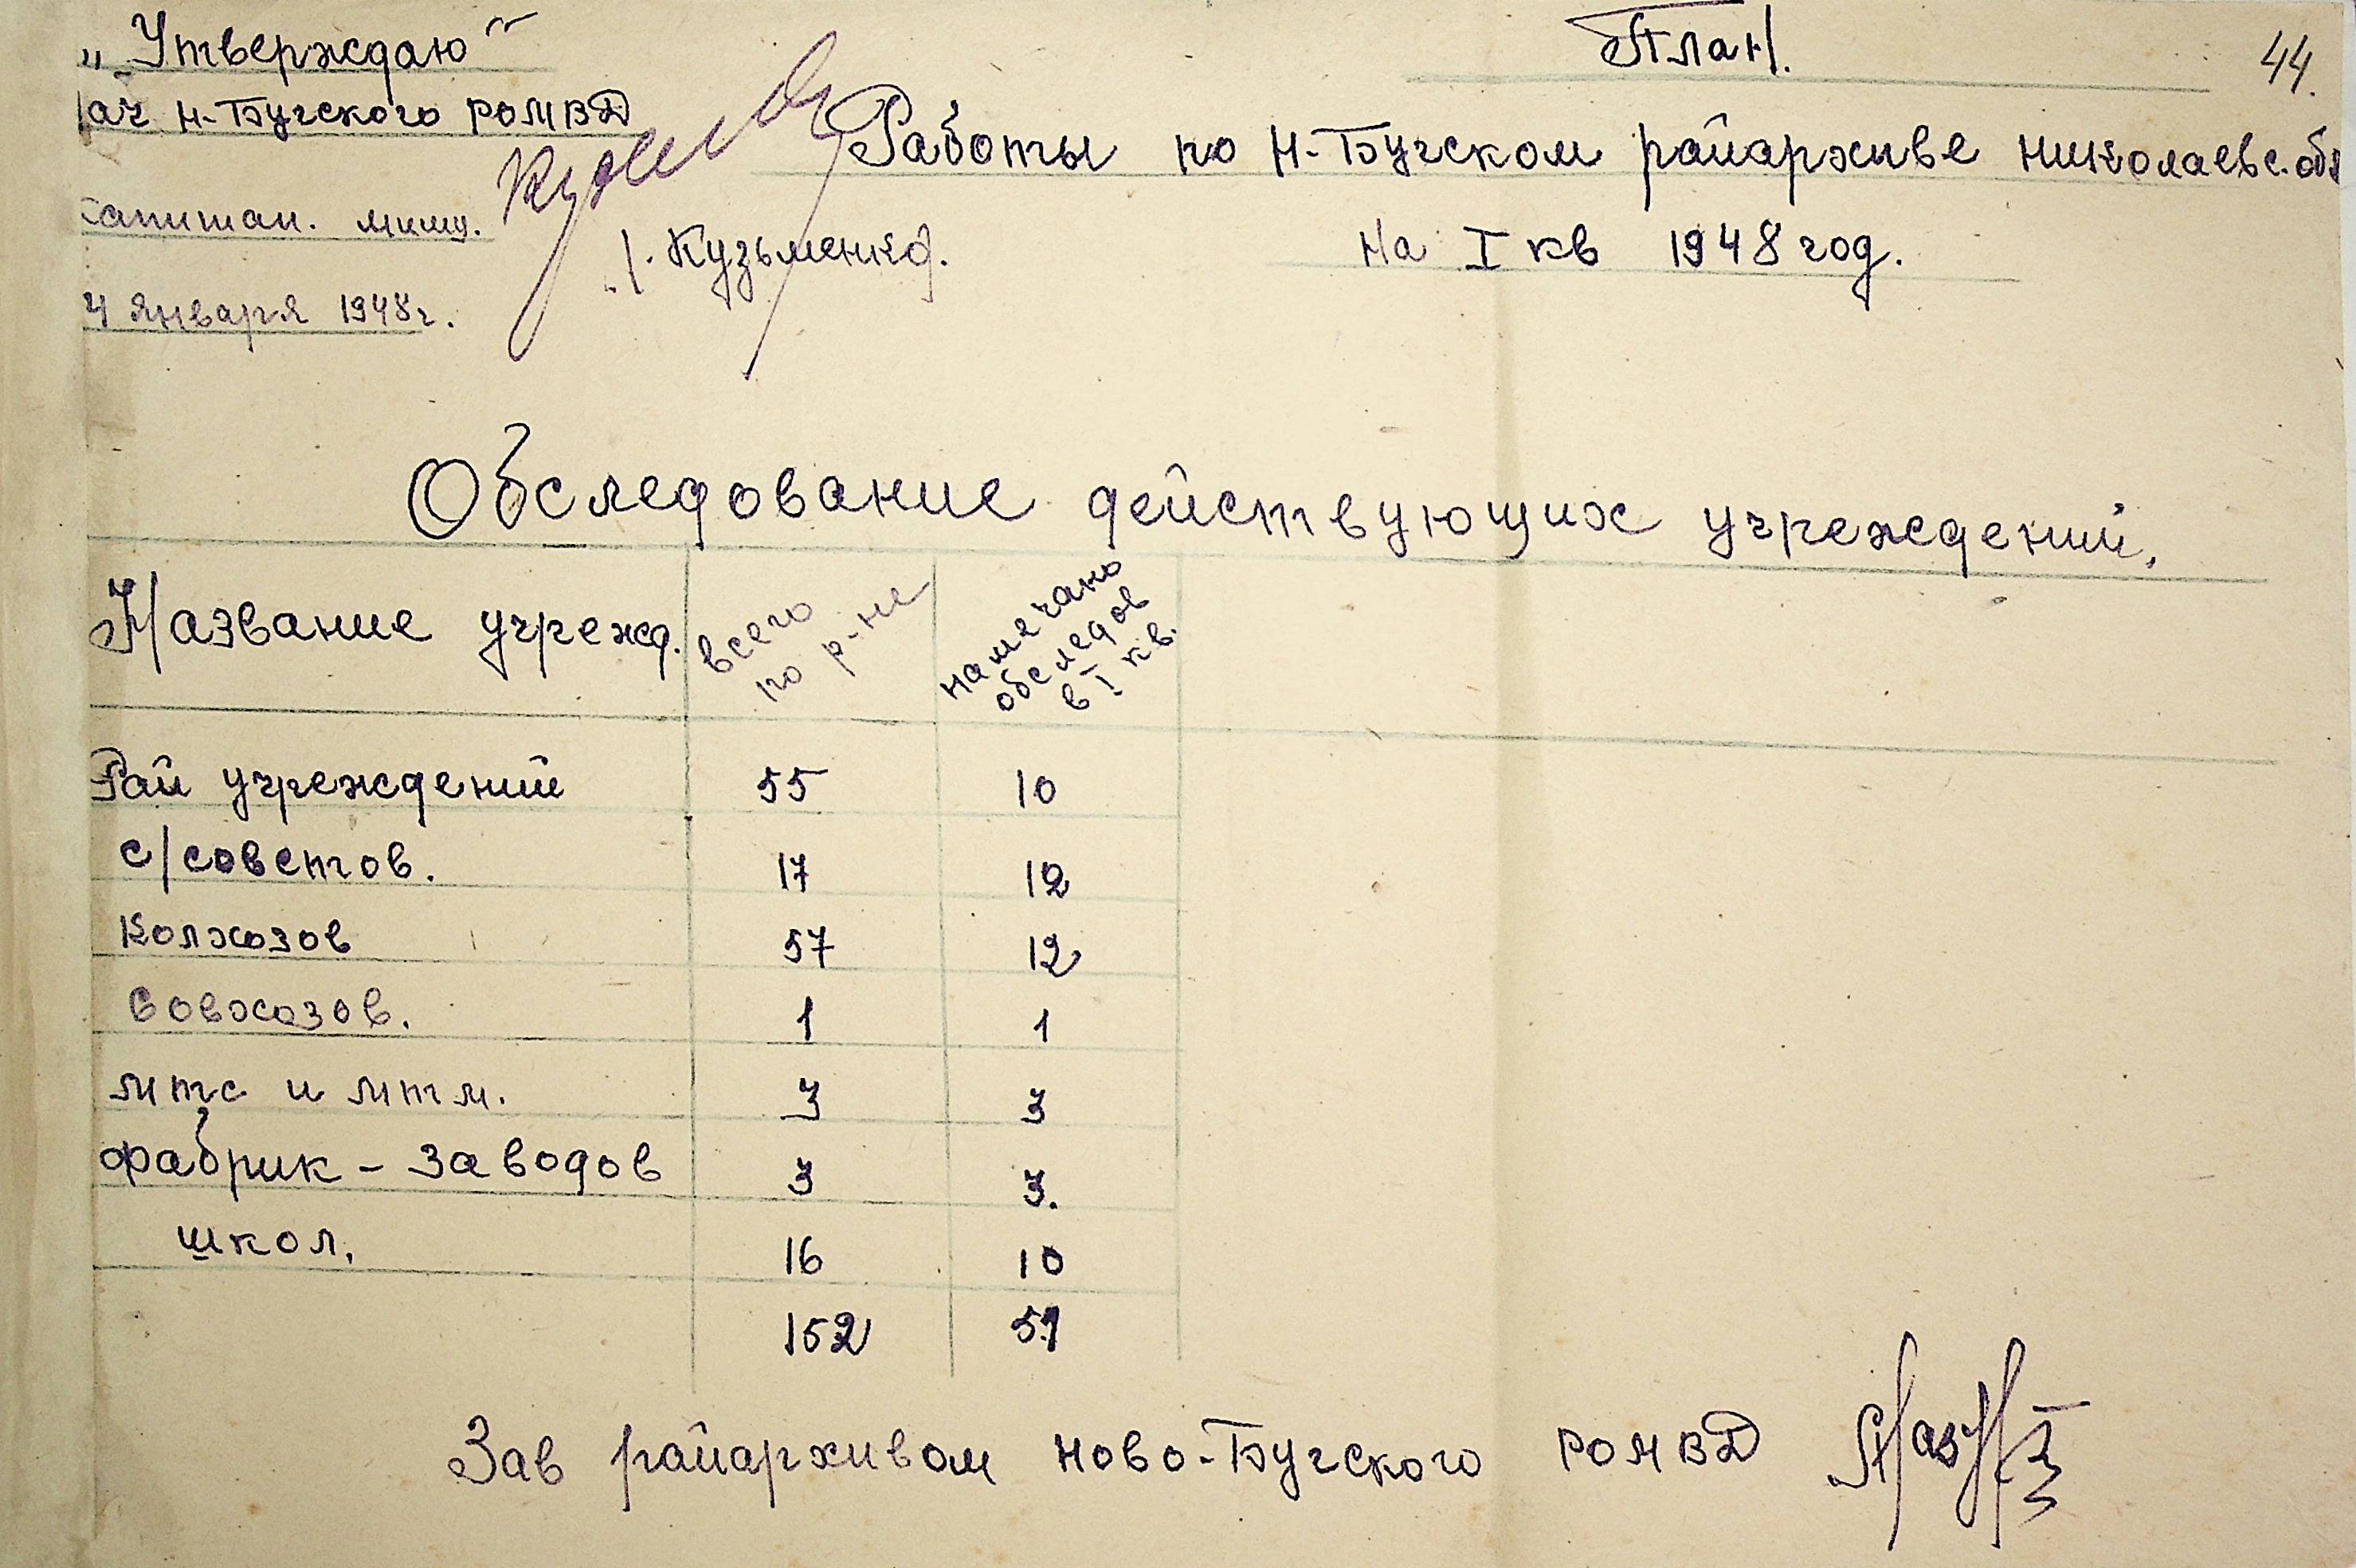 „Утверждаю"
нач н-Бугского РОМВД
Капитан. милиц.
/. Кузьменко/.
4 января 1948г.
План.
44.
Работы по н-Бугском райархиве николаевс. обл
на I кв 1948 год.
Обследование действующих учреждений.
Название учрежд. всего по р-не намечано обследов в I кв.
Рай учреждений 55 10
с/советов. 17 12
колхозов 57 12
Совхозов. 1 1
мтс и мтм. 3 3
фабрик - заводов 3 3.
школ. 16 10
152 51
Зав райархивом ново-Бугского РОМВД